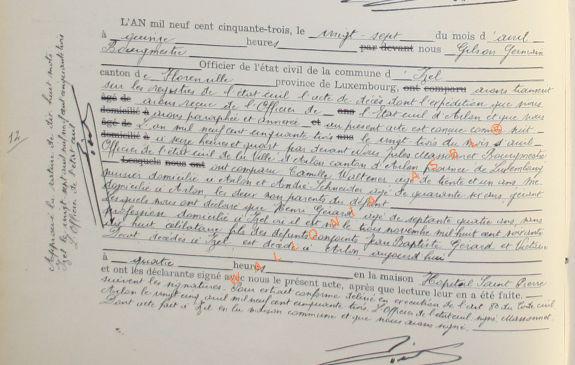 L'AN mil neuf cent cinquante-trois, le vingt-sept du mois d'avril
à quinze heures par devant nous Gilson Germain
Bourgmestre
Officier de l'état civil de la commune d'Izel
canton de Florenville province de Luxembourg, ont comparu avons transcrit
sur les registres de l'état civil l'acte de décès dont l'expédition que nous
âgé de avons reçue de l'Officier de ans l'Etat civil d'Arlon et que nous
domicilié à avons paraphée et annexée et au présent acte est conçue comme suit
âgé de L'an mil neuf cent cinquante trois le vingt trois du mois d'avril
domicilié à onze heures et quart par devant nous
Officier de l'état civil de la ville d'Arlon canton d'Arlon province de Luxembourg
Lesquels nous ont ont comparu Camille Waltener âgé de trente et un ans
domicilié à Arlon et André Schneider âgé de quarante ans
domicilié à Arlon, les deux non parents du défunt
Lesquels nous ont déclaré que Henri Gérard âgé de septante quatre ans, sans
profession domicilié à Izel où il est né le trois novembre mil huit cent
dix huit célibataire fils des défunts conjoints Jean Baptiste Gérard et
décédés à Izel est décédé à Arlon aujourd'hui
à quatre heures en la maison Hôpital Saint Pierre
et ont les déclarants signé avec nous le présent acte, après que lecture leur en a été faite.
suivent les signatures. Pour extrait conforme délivré en exécution de l'art 80 du Code civil
Arlon le vingt cinq avril mil neuf cent cinquante trois L'Officier de l'état civil signé Massonnet
Dont acte fait à Izel en la maison commune et que nous avons signé
12
Approuvé la rature de dix huit mots
Izel le vingt sept avril mil neuf cent cinquante trois
L'Officier de l'état civil